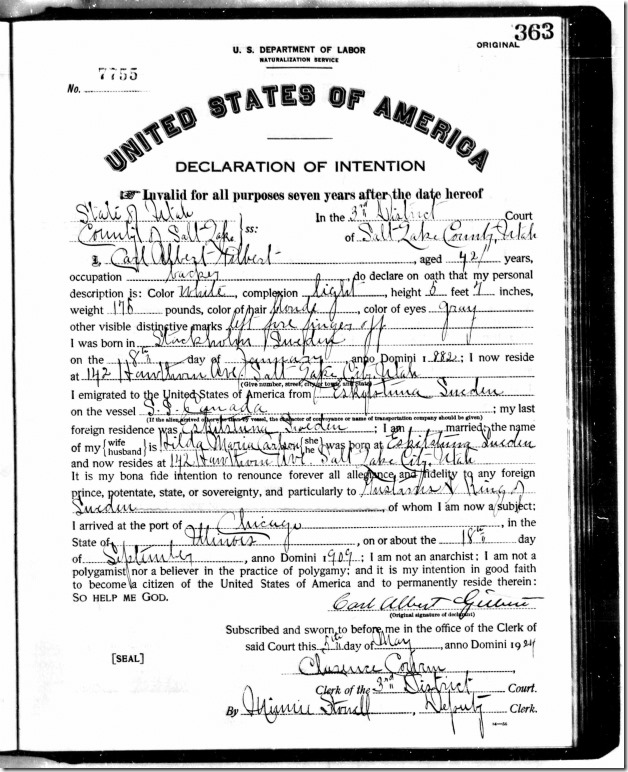 363
ORIGINAL
U. S. DEPARTMENT OF LABOR
NATURALIZATION SERVICE
7755
No.
UNITED STATES OF AMERICA
DECLARATION OF INTENTION
☞ Invalid for all purposes seven years after the date hereof
State of Utah
County of Salt Lake } ss:
In the 3rd District Court
of Salt Lake County, Utah
I, Carl Albert, aged 42 years,
occupation, do declare on oath that my personal
description is: Color White, complexion light, height 5 feet 7 inches,
weight 176 pounds, color of hair blonde, color of eyes gray
other visible distinctive marks left fore finger off
I was born in Stockholm Sweden
on the 8th day of January, anno Domini 1882; I now reside
at 142 Hawthorn Ave, Salt Lake City, Utah
(Give number, street, city or town, and State)
I emigrated to the United States of America from Eskilstuna Sweden
on the vessel S.S. Canada; my last
(If the alien arrived otherwise than by vessel, the character of conveyance or name of transportation company should be given)
foreign residence was Eskilstuna Sweden; I am married; the name
of my {wife husband} is Hilda Maria Carlson {she he} was born at Eskilstuna Sweden
and now resides at 142 Hawthorn Ave. Salt Lake City, Utah
It is my bona fide intention to renounce forever all allegiance and fidelity to any foreign
prince, potentate, state, or sovereignty, and particularly to Gustavus V King of
Sweden, of whom I am now a subject;
I arrived at the port of Chicago, in the
State of Illinois, on or about the 18th day
of September, anno Domini 1909; I am not an anarchist; I am not a
polygamist nor a believer in the practice of polygamy; and it is my intention in good faith
to become a citizen of the United States of America and to permanently reside therein:
SO HELP ME GOD.
Carl Albert
(Original signature of declarant)
Subscribed and sworn to before me in the office of the Clerk of
said Court this 5th day of May, anno Domini 1924
[SEAL]
Clarence Cowan
Clerk of the 3rd District Court.
By Minnie, Deputy Clerk.